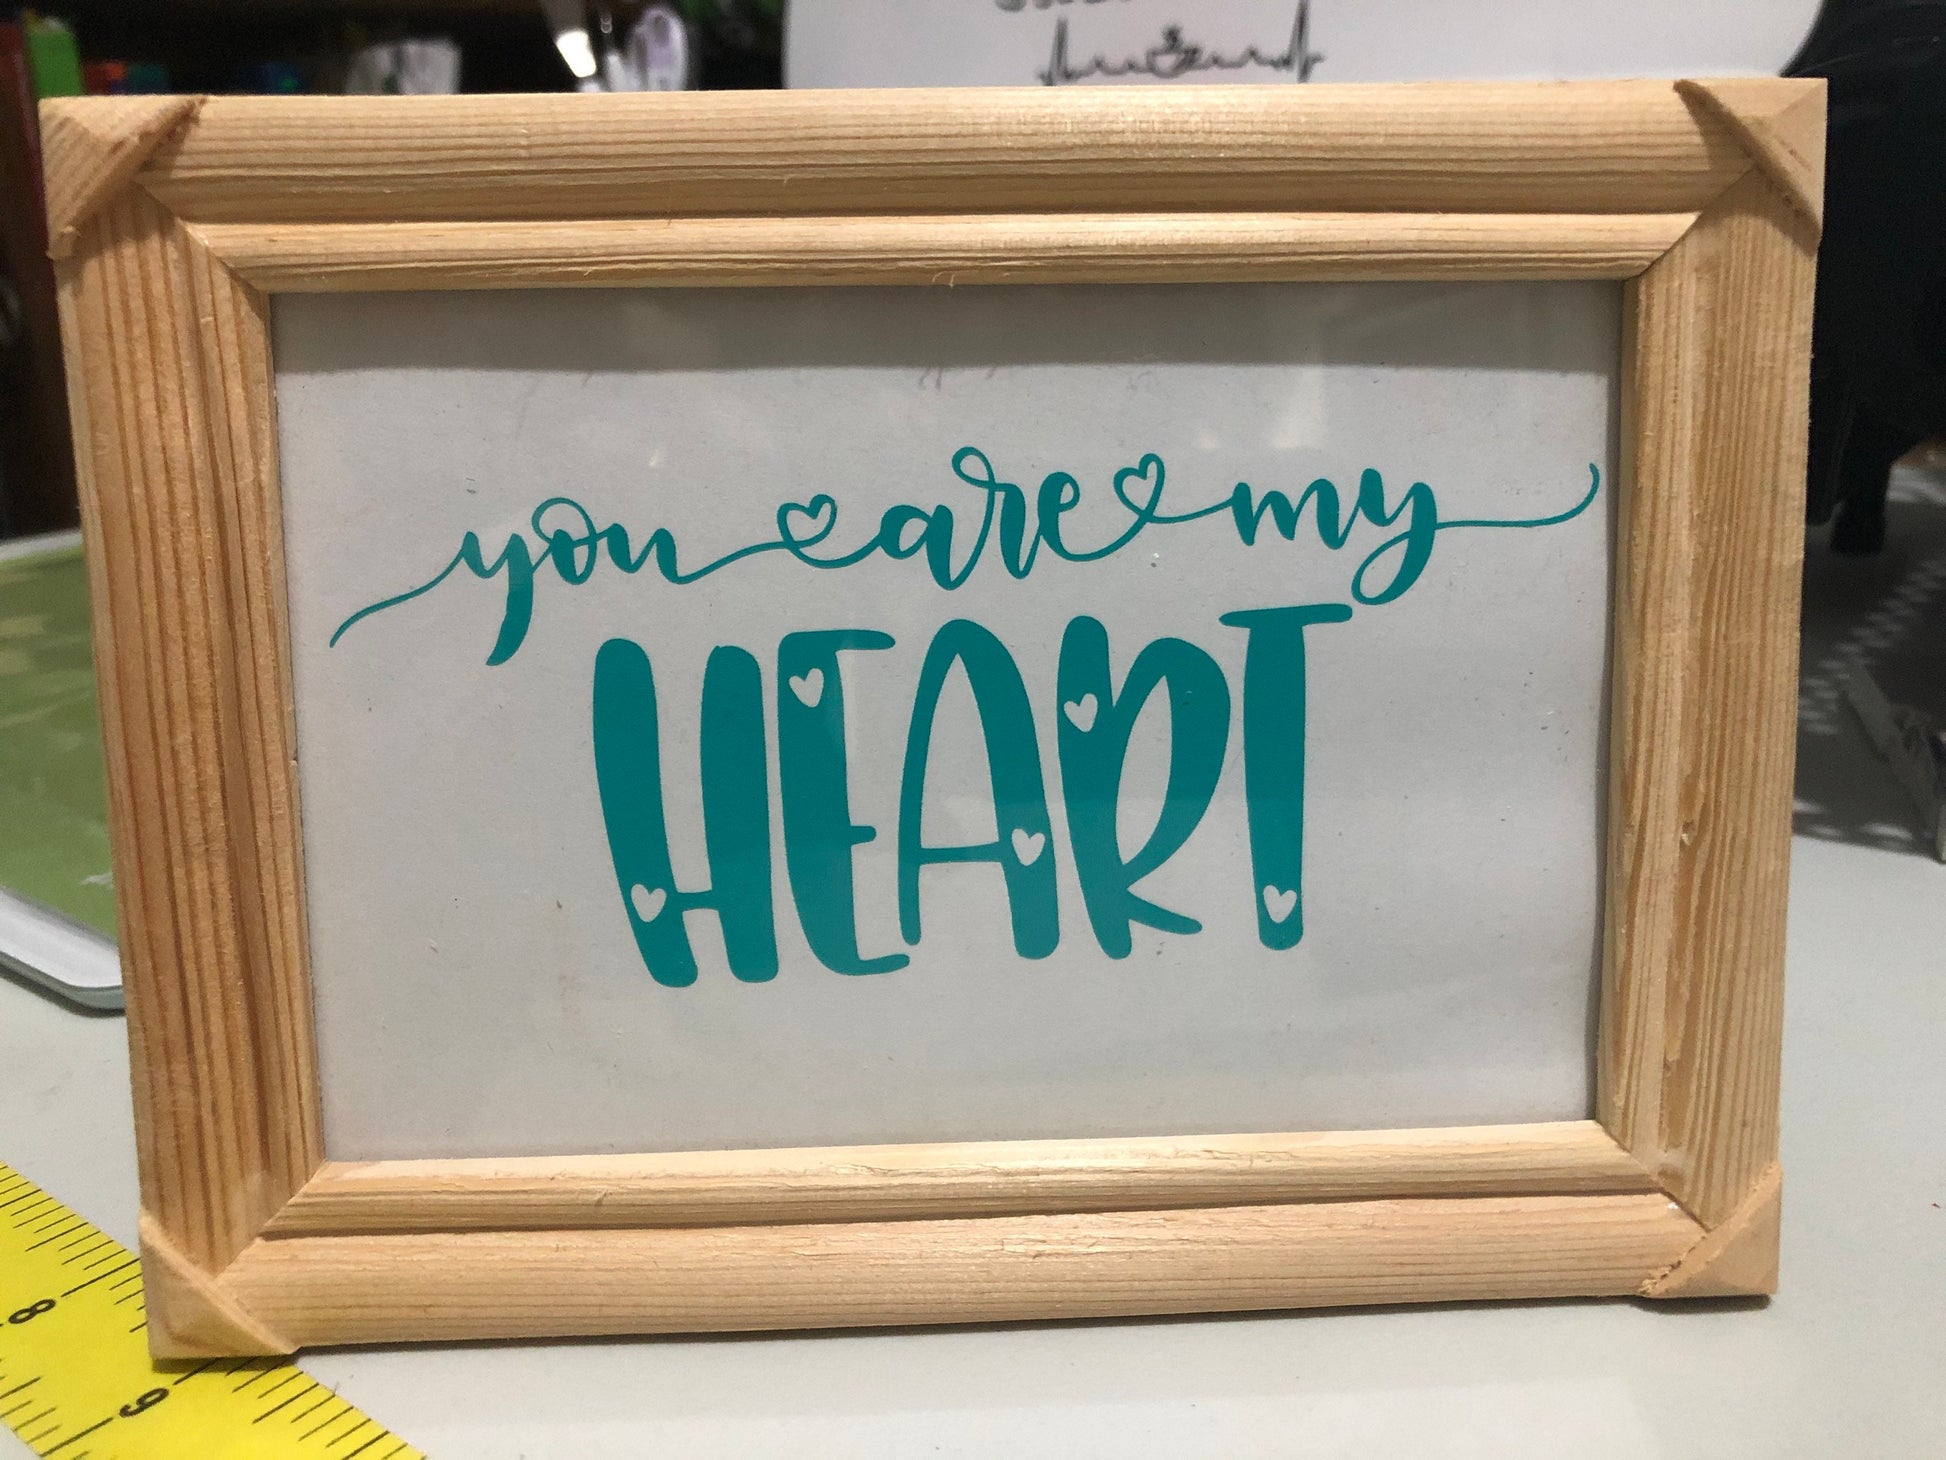 you are my
HEART
8
9